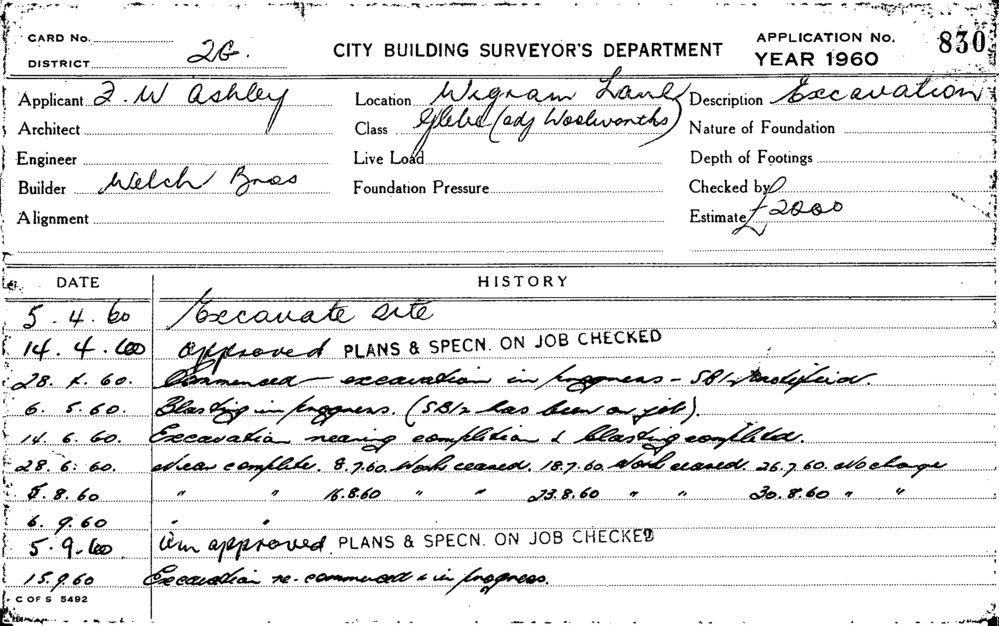 CARD No. CITY BUILDING SURVEYOR'S DEPARTMENT APPLICATION No. 830
DISTRICT 2G. YEAR 1960
Applicant F. W Ashley Location Wigram Lane Description Excavation
Architect Class Glebe (adj Woolworths) Nature of Foundation
Engineer Live Load Depth of Footings
Builder Welch Bros Foundation Pressure Checked by
Alignment Estimate £2000
DATE HISTORY
5.4.60 Excavate site
14.4.60 approved PLANS & SPECN. ON JOB CHECKED
28.4.60. Commenced – excavation in progress – notified.
6.5.60. Blasting in progress. (has been on job).
14.6.60. Excavation nearing completion & blasting completed.
28.6.60. Near complete. 8.7.60. Work ceased. 18.7.60 Work ceased. 26.7.60. No change
8.8.60 " " 16.8.60 " " 23.8.60 " " 30.8.60 " "
6.9.60 " "
5.9.60 approved PLANS & SPECN. ON JOB CHECKED
15.9.60 Excavation re-commenced & in progress.
C OF S 5492